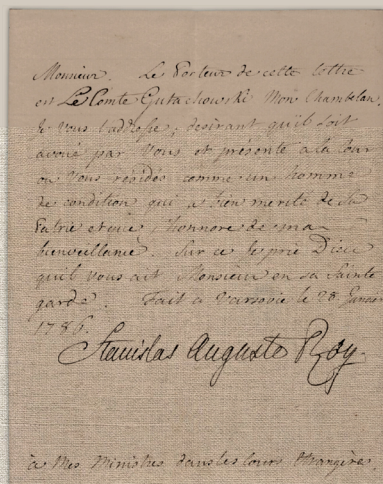 Monsieur. Le Porteur de cette lettre
est Le Comte Gutachowski Mon Chambelan,
Je vous l'adresse, desirant qu'il soit
avoué par Vous et présenté a la Cour
ou Vous residés comme un homme
de condition qui a bien merité de Sa
Patrie et que j'honnore de ma
bienveillance. Sur ce Je prie Dieu
qu'il vous ait Monsieur en sa Sainte
garde. Fait a Varsovie le 28 Janvier
1786.
Stanislas Auguste Roy.
à Mes Ministres dans les Cours etrangères.